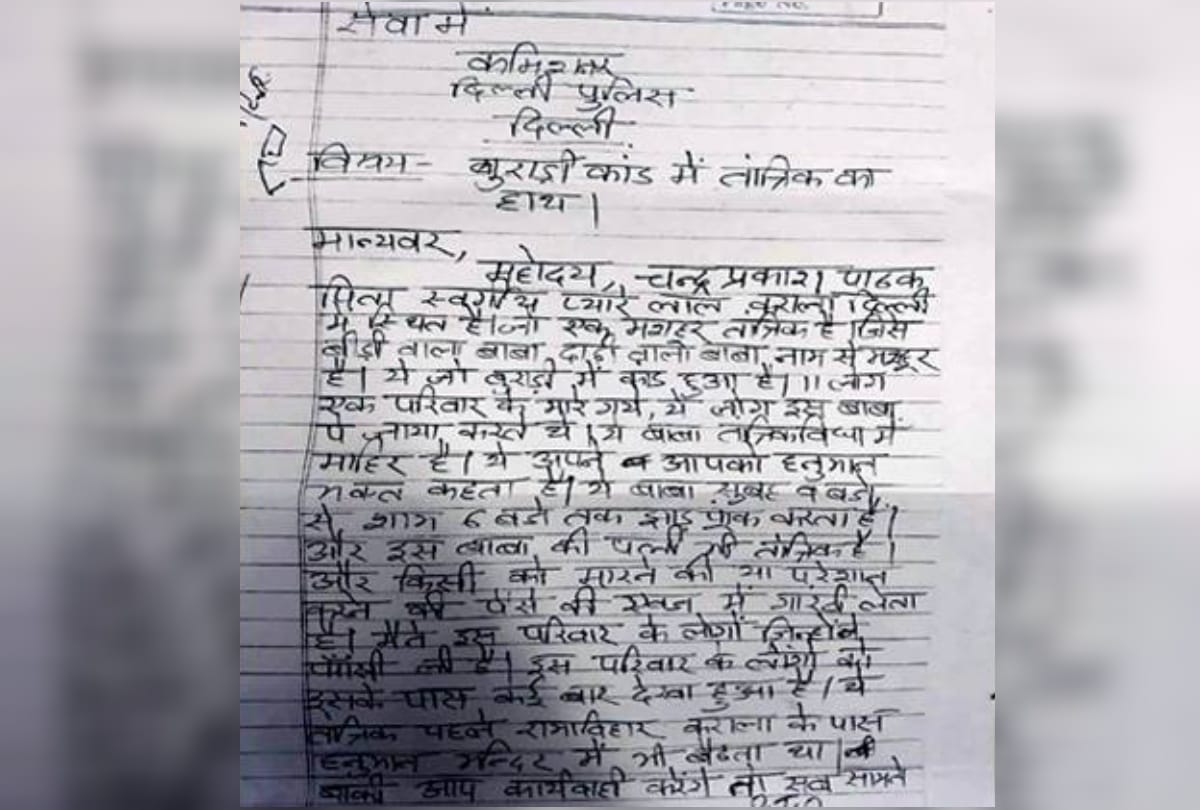 सेवा में
कमिश्नर
दिल्ली पुलिस
दिल्ली
विषय - बुराड़ी कांड में तांत्रिक का
हाथ।
मान्यवर,
महोदय, चन्द्र प्रकाश पाठक
पिता स्वर्गीय प्यारे लाल कराला दिल्ली
में स्थित है। जो एक मशहूर तांत्रिक है। जिसे
बीड़ी वाला बाबा, दाढ़ी वाला बाबा नाम से मशहूर
है। ये जो बुराड़ी में कांड हुआ है। 11 लोग
एक परिवार के मारे गये, ये लोग इस बाबा
पे जाया करते थे। ये बाबा तांत्रिक विधा में
माहिर है। ये अपने आपको हनुमान
भक्त कहता है। ये बाबा सुबह 9 बजे
से शाम 6 बजे तक झाड़ फूंक करता है।
और इस बाबा की पत्नी भी तांत्रिक है।
और किसी को मारने की या परेशान
करने की पैसे की एवज में गारंटी लेता
है। मैंने इस परिवार के लोगों जिन्होंने
फांसी ली है। इस परिवार के लोगों को
इसके पास कई बार देखा हुआ है। ये
तांत्रिक पहले रामाविहार कराला के पास
हनुमान मन्दिर में भी बैठता था।
बाकी आप कार्यवाही करेंगे तो सब सामने